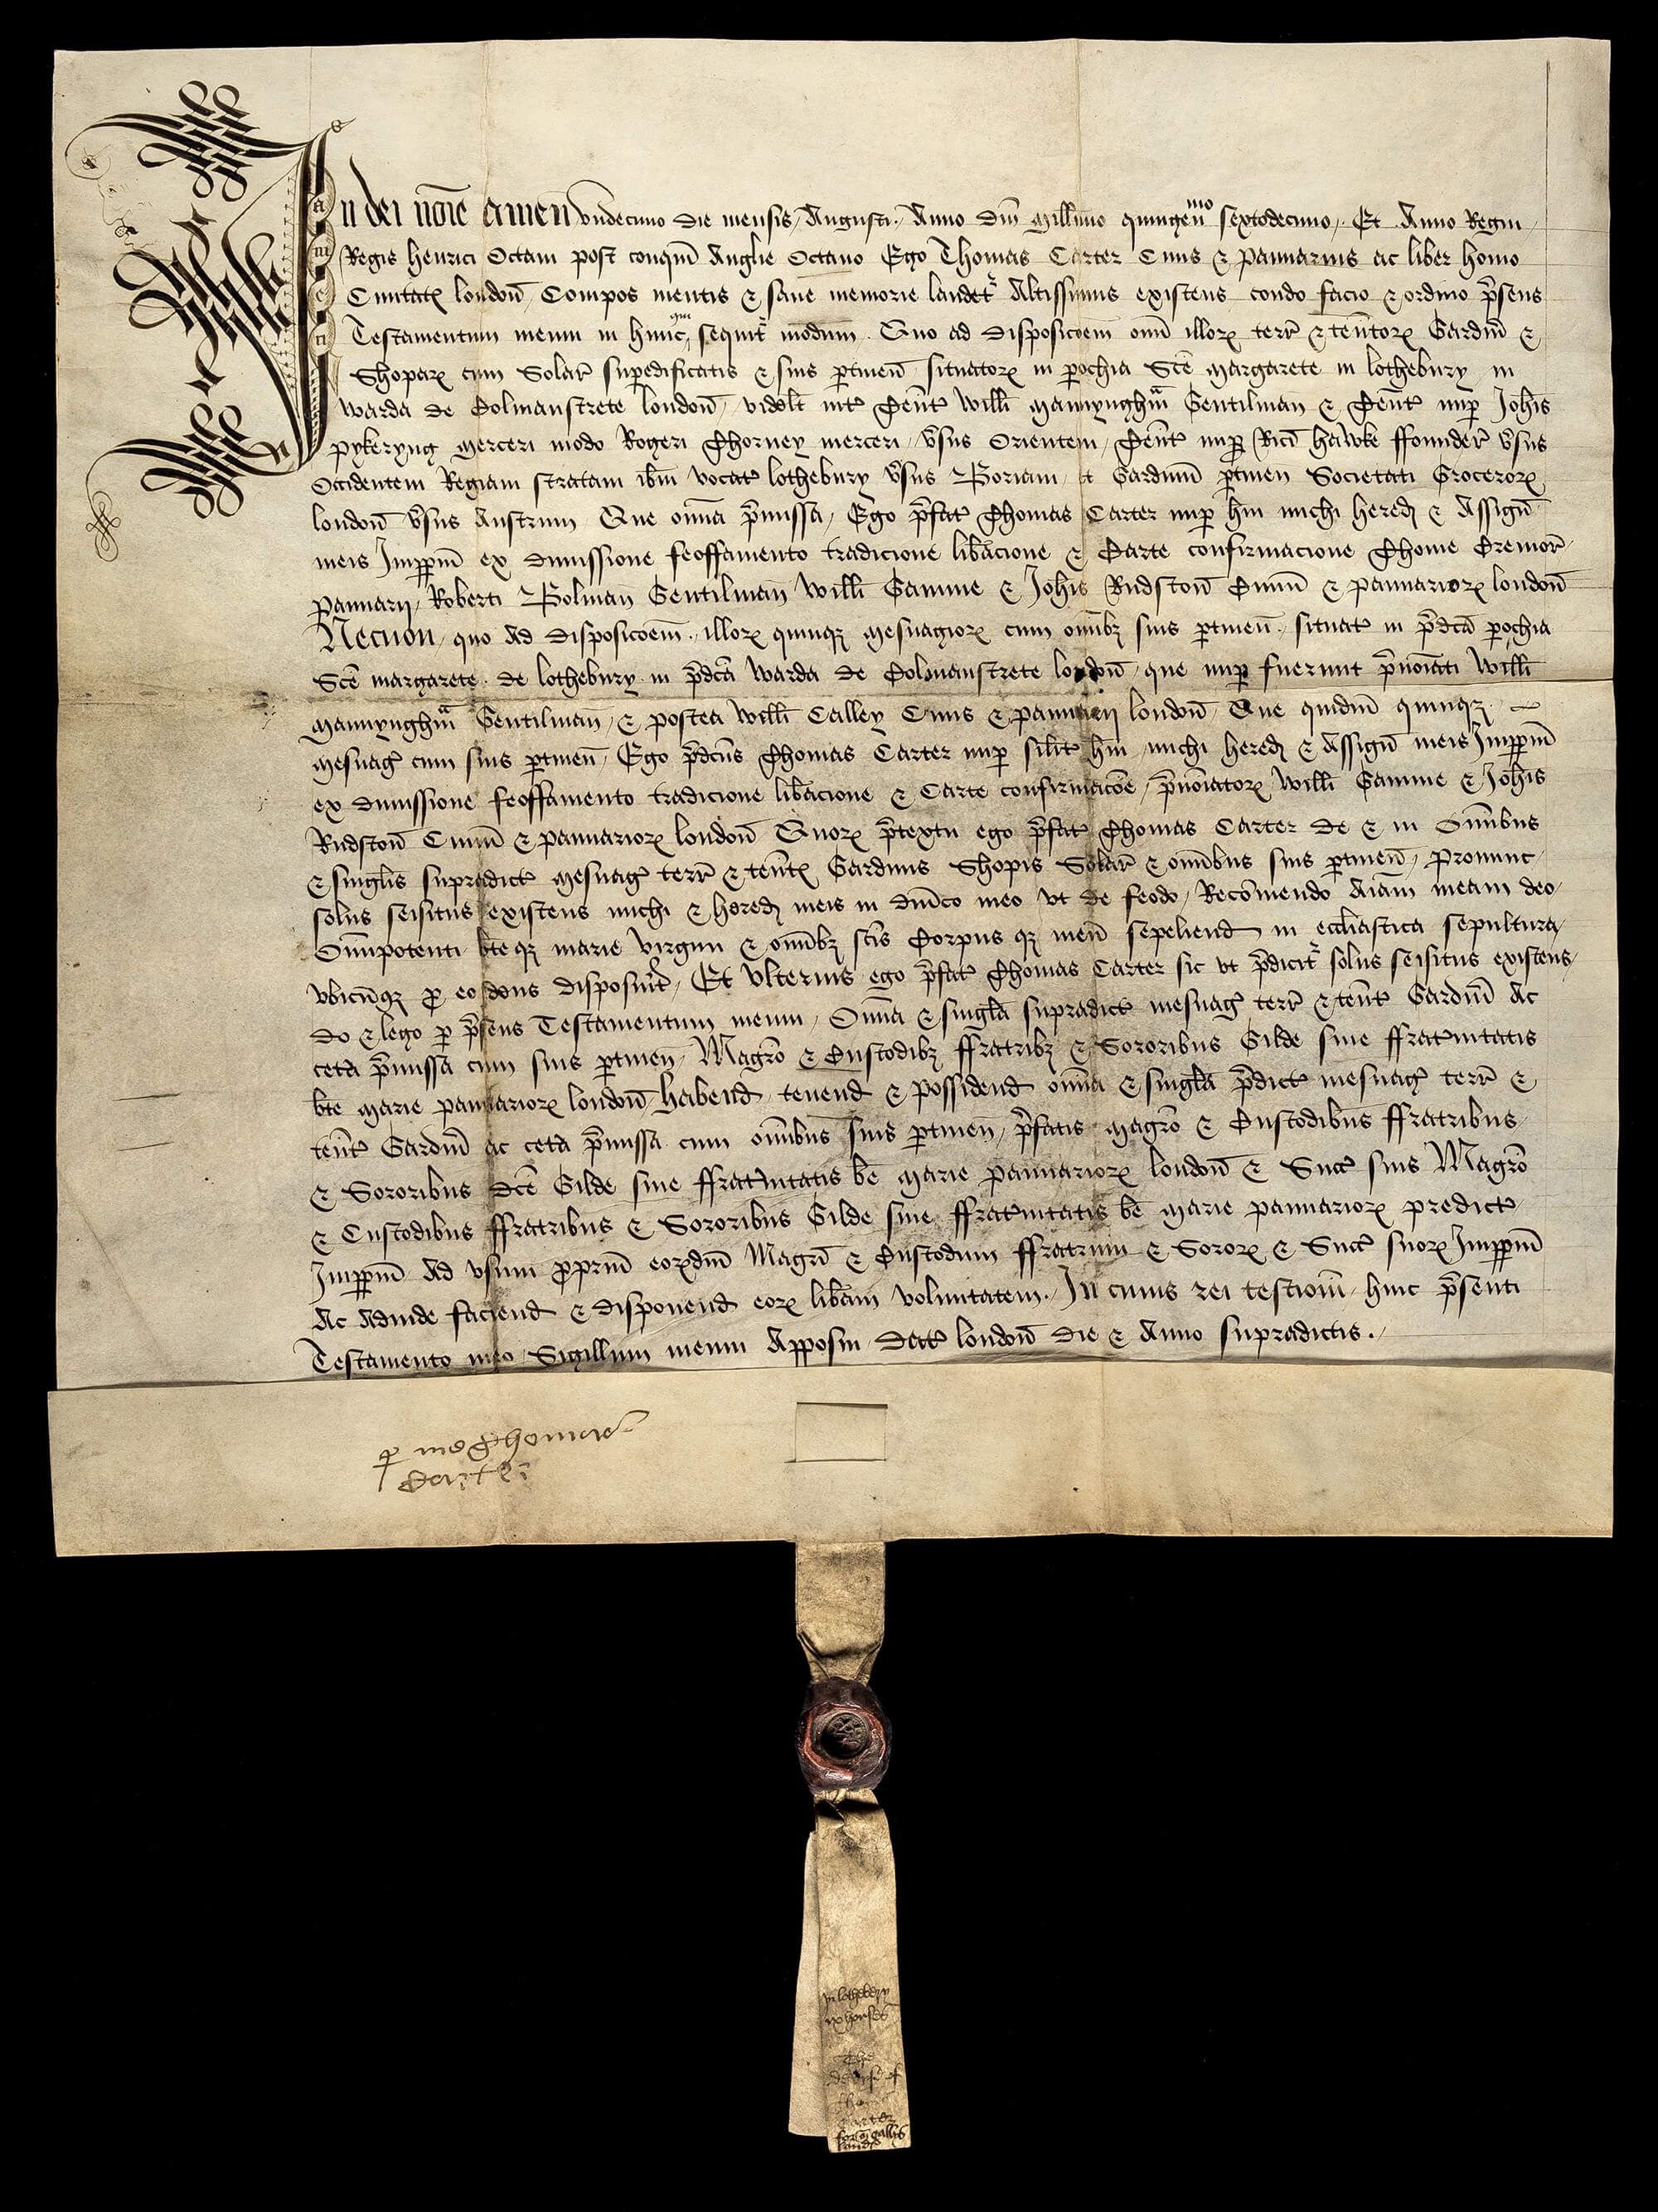 In dei noīe amen vndecimo die mensis Augusti Anno Dm̄ Millīmo quingen̄mo sextodecimo Et Anno Regni
Regis henrici Octaui post conqm̄ Anglie Octauo Ego Thomas Carter Ciuis & pannarius ac liber homo
Ciuitatꝭ london̄ Compos mentis & sane memorie laudetr Altissimus existens condo facio & ordino p̄sens
Testamentum meum in hunc qui sequitr modum Quo ad disposicoem̄ om̄i illoꝝ terr̄ & ten̄toꝝ Gardin̄ &
Shopaꝝ cum Solar̄ supedificatis & suis ptinen̄ situatoꝝ in pochia Sce margarete in lothebury in
warda de Colmanstrete london̄ videlt int̄ Tent̄ Willi Mannynghm̄ Gentilman & Tent̄ nup Johis
pykeryng merceri modo Rogeri Thorney merceri v̄sus Orientem Tent̄ nup Rici hawke ffounder v̄sus
Occidentem Regiam stratam ibm̄ vocat̄ lothebury v̄sus Boriam et Gardinū ptinen Societati Groceroꝝ
london̄ v̄sus Austrum Que om̄ia p̄missa Ego p̄fat̄ Thomas Carter nup hui michi hered & Assign̄
meis Imppm̄ ex dimissione feoffamento tradicione libacione & Carte confirmacione Thome Cremor
pannarij Roberti Bolman Gentilman Willi Gamme & Johis Rudston̄ Ciuiū & pannarioꝝ london̄
Necnon quo ad disposicoem̄ illoꝝ quinqꝫ mesuagioꝝ cum om̄ibꝫ suis ptinen̄ situat̄ in p̄dca pochia
Sce margarete de lothebury in p̄dca warda de Colmanstrete london̄ que nup fuerunt p̄noiati Willi
Mannynghm̄ Gentilman & postea Willi Calley Ciuis & pannarij london̄ Que quidm̄ quinqꝫ
mesuaḡ cum suis ptinen̄ Ego p̄dcus Thomas Carter nup silit̄ hui michi hered & Assign̄ meis Imppm̄
ex dimissione feoffamento tradicione libacione & Carte confirmacoe p̄noiatoꝝ Willi Gamme & Johis
Rudston̄ Ciuiū & pannarioꝝ london̄ Quoꝝ p̄textu ego p̄fat̄ Thomas Carter de & in Om̄ibus
& singlis supradict̄ mesuaḡ terr̄ & tent̄ Gardinis Shopis Solar̄ & om̄ibus suis ptinen̄ pronunc
solus seisitus existens michi & hered meis in dn̄ico meo vt de feodo Recōmendo Aiam̄ meam deo
Om̄ipotenti bte qꝫ marie virgini & om̄ibꝫ scis Corpus qꝫ meū sepeliend in eccliastica sepultura
vbicūqꝫ p eo deus disposuit Et Vlterius ego p̄fat̄ Thomas Carter sic vt p̄dicitr solus seisitus existens
do & lego p p̄sens Testamentum meum Om̄ia & singla supradict̄ mesuaḡ terr̄ & tent̄ Gardin̄ Ac
ceta p̄missa cum suis ptinen̄ Magro & Custodibꝫ ffratribꝫ & Sororibus Gilde siue ffrat̄nitatis
bte marie pannarioꝝ london̄ Habend tenend & possidend om̄ia & singla p̄dict̄ mesuaḡ terr̄ &
tent̄ Gardin̄ ac ceta p̄missa cum om̄ibus suis ptinen̄ p̄fatis Magro & Custodibus ffratribus
& Sororibus dce Gilde siue ffrat̄nitatis be marie pannarioꝝ london̄ & Succ̄ suis Magro
& Custodibus ffratribus & Sororibus Gilde siue ffrat̄nitatis be marie pannarioꝝ predict̄
Imppm̄ Ad vsum ppriū eoꝝdm̄ Magri & Custodum ffratrum & Soroꝝ & Succ̄ suoꝝ Imppm̄
Ac Adinde faciend & disponend eoꝝ libam voluntatem In cuius rei testioiū huic p̄senti
Testamento meo Sigillum meum Apposui dat̄ london̄ die & Anno supradictis
p me Thomam
Carter
in lothebery
ix howses
The
devise of
Thomas
Carter
landes